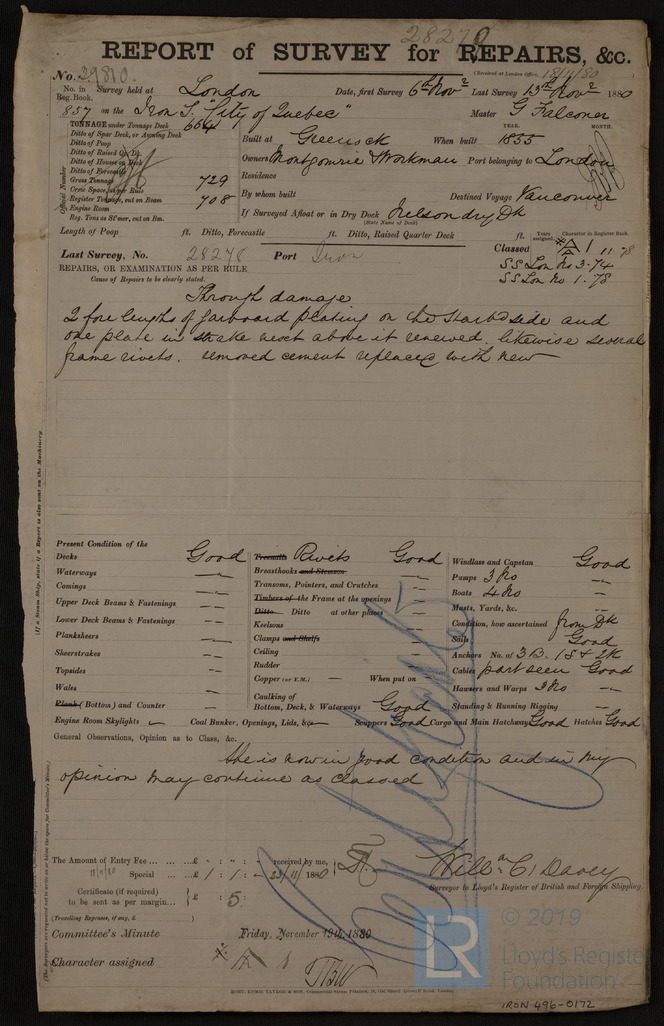 28270
REPORT of SURVEY for REPAIRS, &c.
(Received at London Office, 18/11/80
No. 29810.
No. in Reg. Book. Survey held at London Date, first Survey 6th Novr Last Survey 13th Novr 1880
857 on the Iron S. "City of Quebec" Master G Falconer
TONNAGE under Tonnage Deck 664
Ditto of Spar Deck, or Awning Deck
Ditto of Poop
Ditto of Raised Qr. Dk.
Ditto of Houses on Deck
Ditto of Forecastle
Gross Tonnage 729
Crew Space, as per Rule
Register Tonnage, cut on Beam 708
Engine Room
Reg. Tons as St'mer, cut on Bm.
Official Number
Built at Greenock When built 1855
YEAR. MONTH.
Owners Montgomrie & Workman Port belonging to London
Residence
By whom built Destined Voyage Vancouver
If Surveyed Afloat or in Dry Dock Nelson dry Dk
(State Name of Dock)
Length of Poop ft. Ditto, Forecastle ft. Ditto, Raised Quarter Deck ft.
Years assigned. Character in Register Book.
Last Survey, No. 28278 Port Iron
Classed A 1 11.78
SS Lon No 3-74
SS Lon No 1.78
REPAIRS, OR EXAMINATION AS PER RULE
Cause of Repairs to be clearly stated.
Through damage
2 fore lengths of garboard plating on the starbd side and
one plate in strake next above it renewed. likewise several
frame rivets. removed cement replaced with new
(If a Steam Ship, state if a Report is also sent on the Machinery.
Present Condition of the
Decks Good
Waterways "
Comings "
Upper Deck Beams & Fastenings "
Lower Deck Beams & Fastenings "
Planksheers "
Sheerstrakes "
Topsides "
Wales "
Plank (Bottom) and Counter "
Engine Room Skylights
Treenails Rivets Good
Breasthooks and Stemson "
Transoms, Pointers, and Crutches "
Timbers of the Frame at the openings "
Ditto Ditto at other places "
Keelsons "
Clamps and Shelfs "
Ceiling "
Rudder "
Copper (or Y.M.) When put on
Caulking of
Bottom, Deck, & Waterways Good
Coal Bunker, Openings, Lids, &c. Scuppers Good Cargo and Main Hatchway Good Hatches Good
Windlass and Capstan Good
Pumps 3 No "
Boats 4 No "
Masts, Yards, &c. "
Condition, how ascertained from Dk
Sails Good
Anchors No. of 3B. 1S & 2K
Cables part seen Good
Hawsers and Warps 3 No "
Standing & Running Rigging "
General Observations, Opinion as to Class, &c.
She is now in good condition and in my
opinion may continue as classed
The Amount of Entry Fee ... ... ...£ " : " : " received by me,
18/11/80 Special ... ...£ 1 : 1 : - 23/11/1880
Certificate (if required) to be sent as per margin... £ : 5 :
(Travelling Expenses, if any, £ )
Willm C Davey
Surveyor to Lloyd's Register of British and Foreign Shipping.
Committee's Minute Friday, November 19th, 1880
Character assigned A 1
© 2019
LR
Lloyd's Register
Foundation
IRON 496-0172